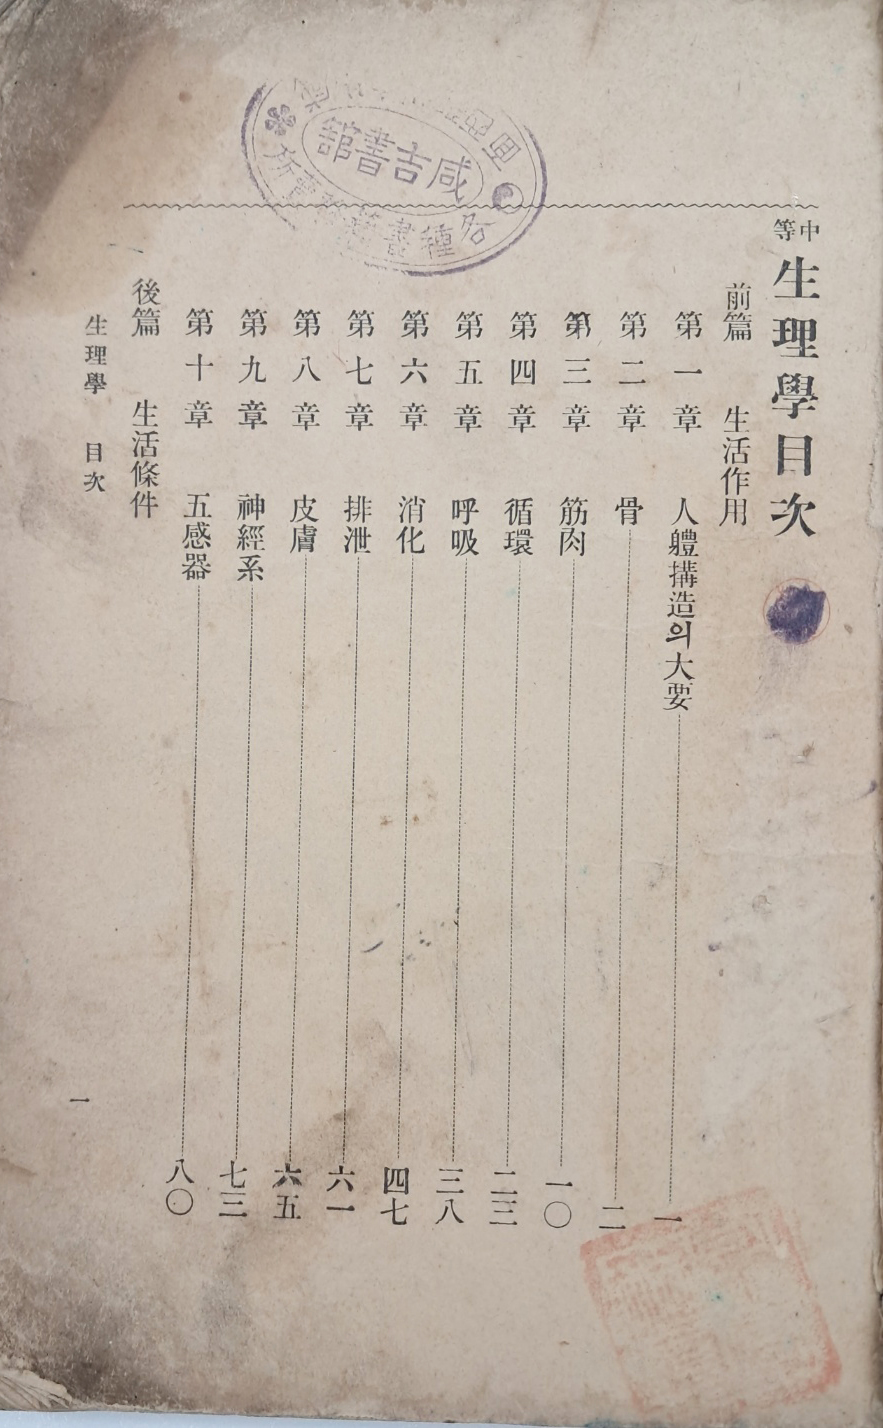 中等 生理學目次
前篇 生活作用
第一章 人軆搆造의大要 一
第二章 骨 二
第三章 筋肉 一〇
第四章 循環 二三
第五章 呼吸 三八
第六章 消化 四七
第七章 排泄 六一
第八章 皮膚 六五
第九章 神經系 七三
第十章 五感器 八〇
後篇 生活條件
生理學 目次 一
咸吉書館
各種書